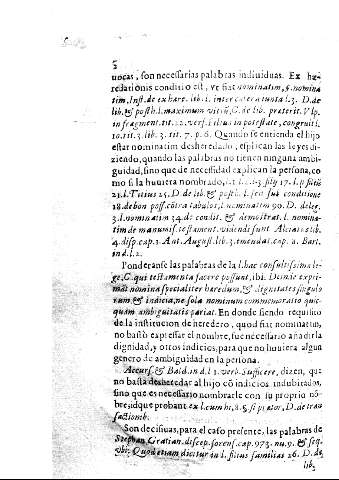 5
uocas, son necessarias palabras indiuiduas. Ex hæ-
redationis conditio est, vt fiat nominatim, §. nomina
tim, Inst. de exhære. lib. l. inter cætera iuncta l. 3. D. de
lib. & posth. l. maximum vitiũ, C. de lib. præterit. Vlp.
in fragment. tit. 22. vers. filius in potestate, congruit l.
10. tit. 3. lib. 3. tit. 7. p. 6. Quando se entienda el hijo
estar nominatim desheredado, esplican las leyes di-
ziendo, quando las palabras no tienen ninguna ambi-
guidad, sino que de necessidad explican la persona, co
mo si la huuiera nombrado,
21. l. Titius 25. D. de lib. & posth. l. sub conditione
18. de bon. poss. cõtra tabulas, l. nominatim 90. D. de leg.
3. l. nominatim 34. de condit. & demõstrat. l. nomina-
tim de manumis. testament. videndi sunt Alciat. lib.
4. disp. cap. 1. Ant. August. lib. 3. emendat. cap. 2. Bart.
in d. l. 2.
Ponderanse las palabras de la l. hac consultissima le-
ge, C. qui testamenta facere possunt, ibi. Demũ expri-
mat nomina specialiter hæredum, & dignitates singulo
rum, & indicia, ne sola nominum commemoratio que-
quam ambiguitatis pariat. En donde siendo requisito
de la institucion de heredero, quod fiat nominatim,
no bastò expressar el nombre, fue necessario añadir la
dignidad, y otros indicios, para que no huuiera algun
genero de ambiguidad en la persona.
Accurs. & Bald. in d. l. 2. verb. Sufficere, dizen, que
no basta desheredar al hijo cõ indicios indubitados,
sino que es necessario nombrarle con su proprio nõ-
bre, idque probant ex l. cum hi, 8. §. si prætor, D. de tran
sactionib.
Son decisiuas, para el caso presente, las palabras de
Stephan. Gratian. discep. forens. cap. 973. nu. 9. & seq.
ibi: Quod etiam dicitur in l. filius familias 26. D. de
lib.